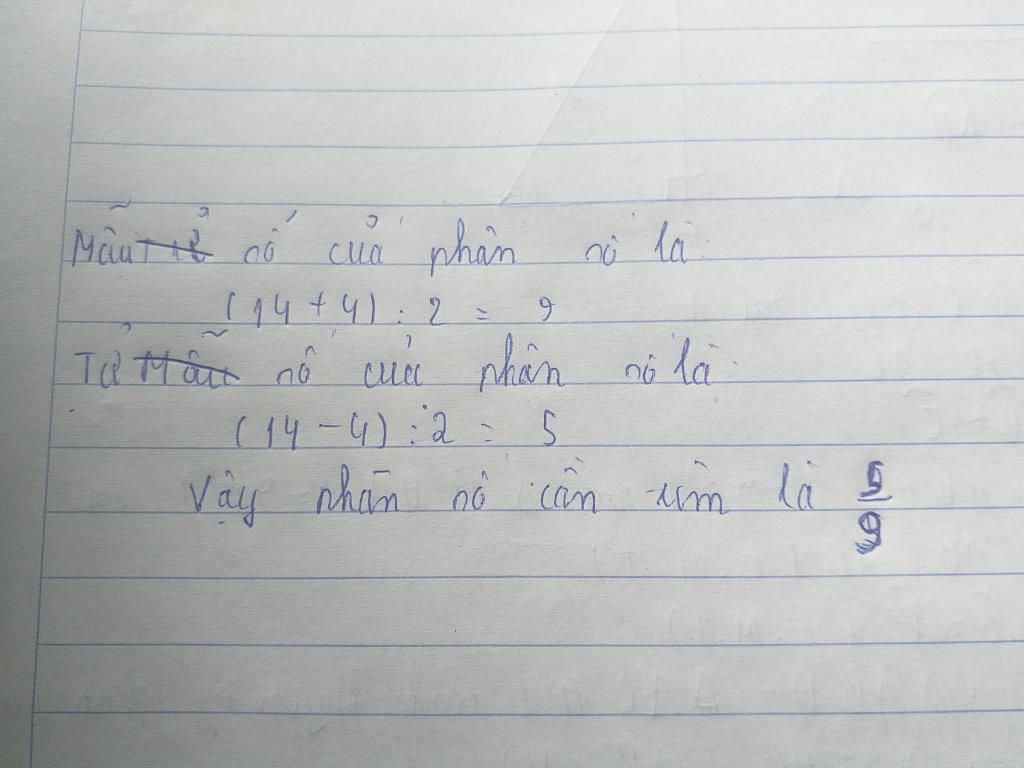 Mẫu số của phân số là:
(14 + 4) : 2 = 9
Tử số của phân số là:
(14 - 4) : 2 = 5
Vậy phân số cần tìm là 5/9